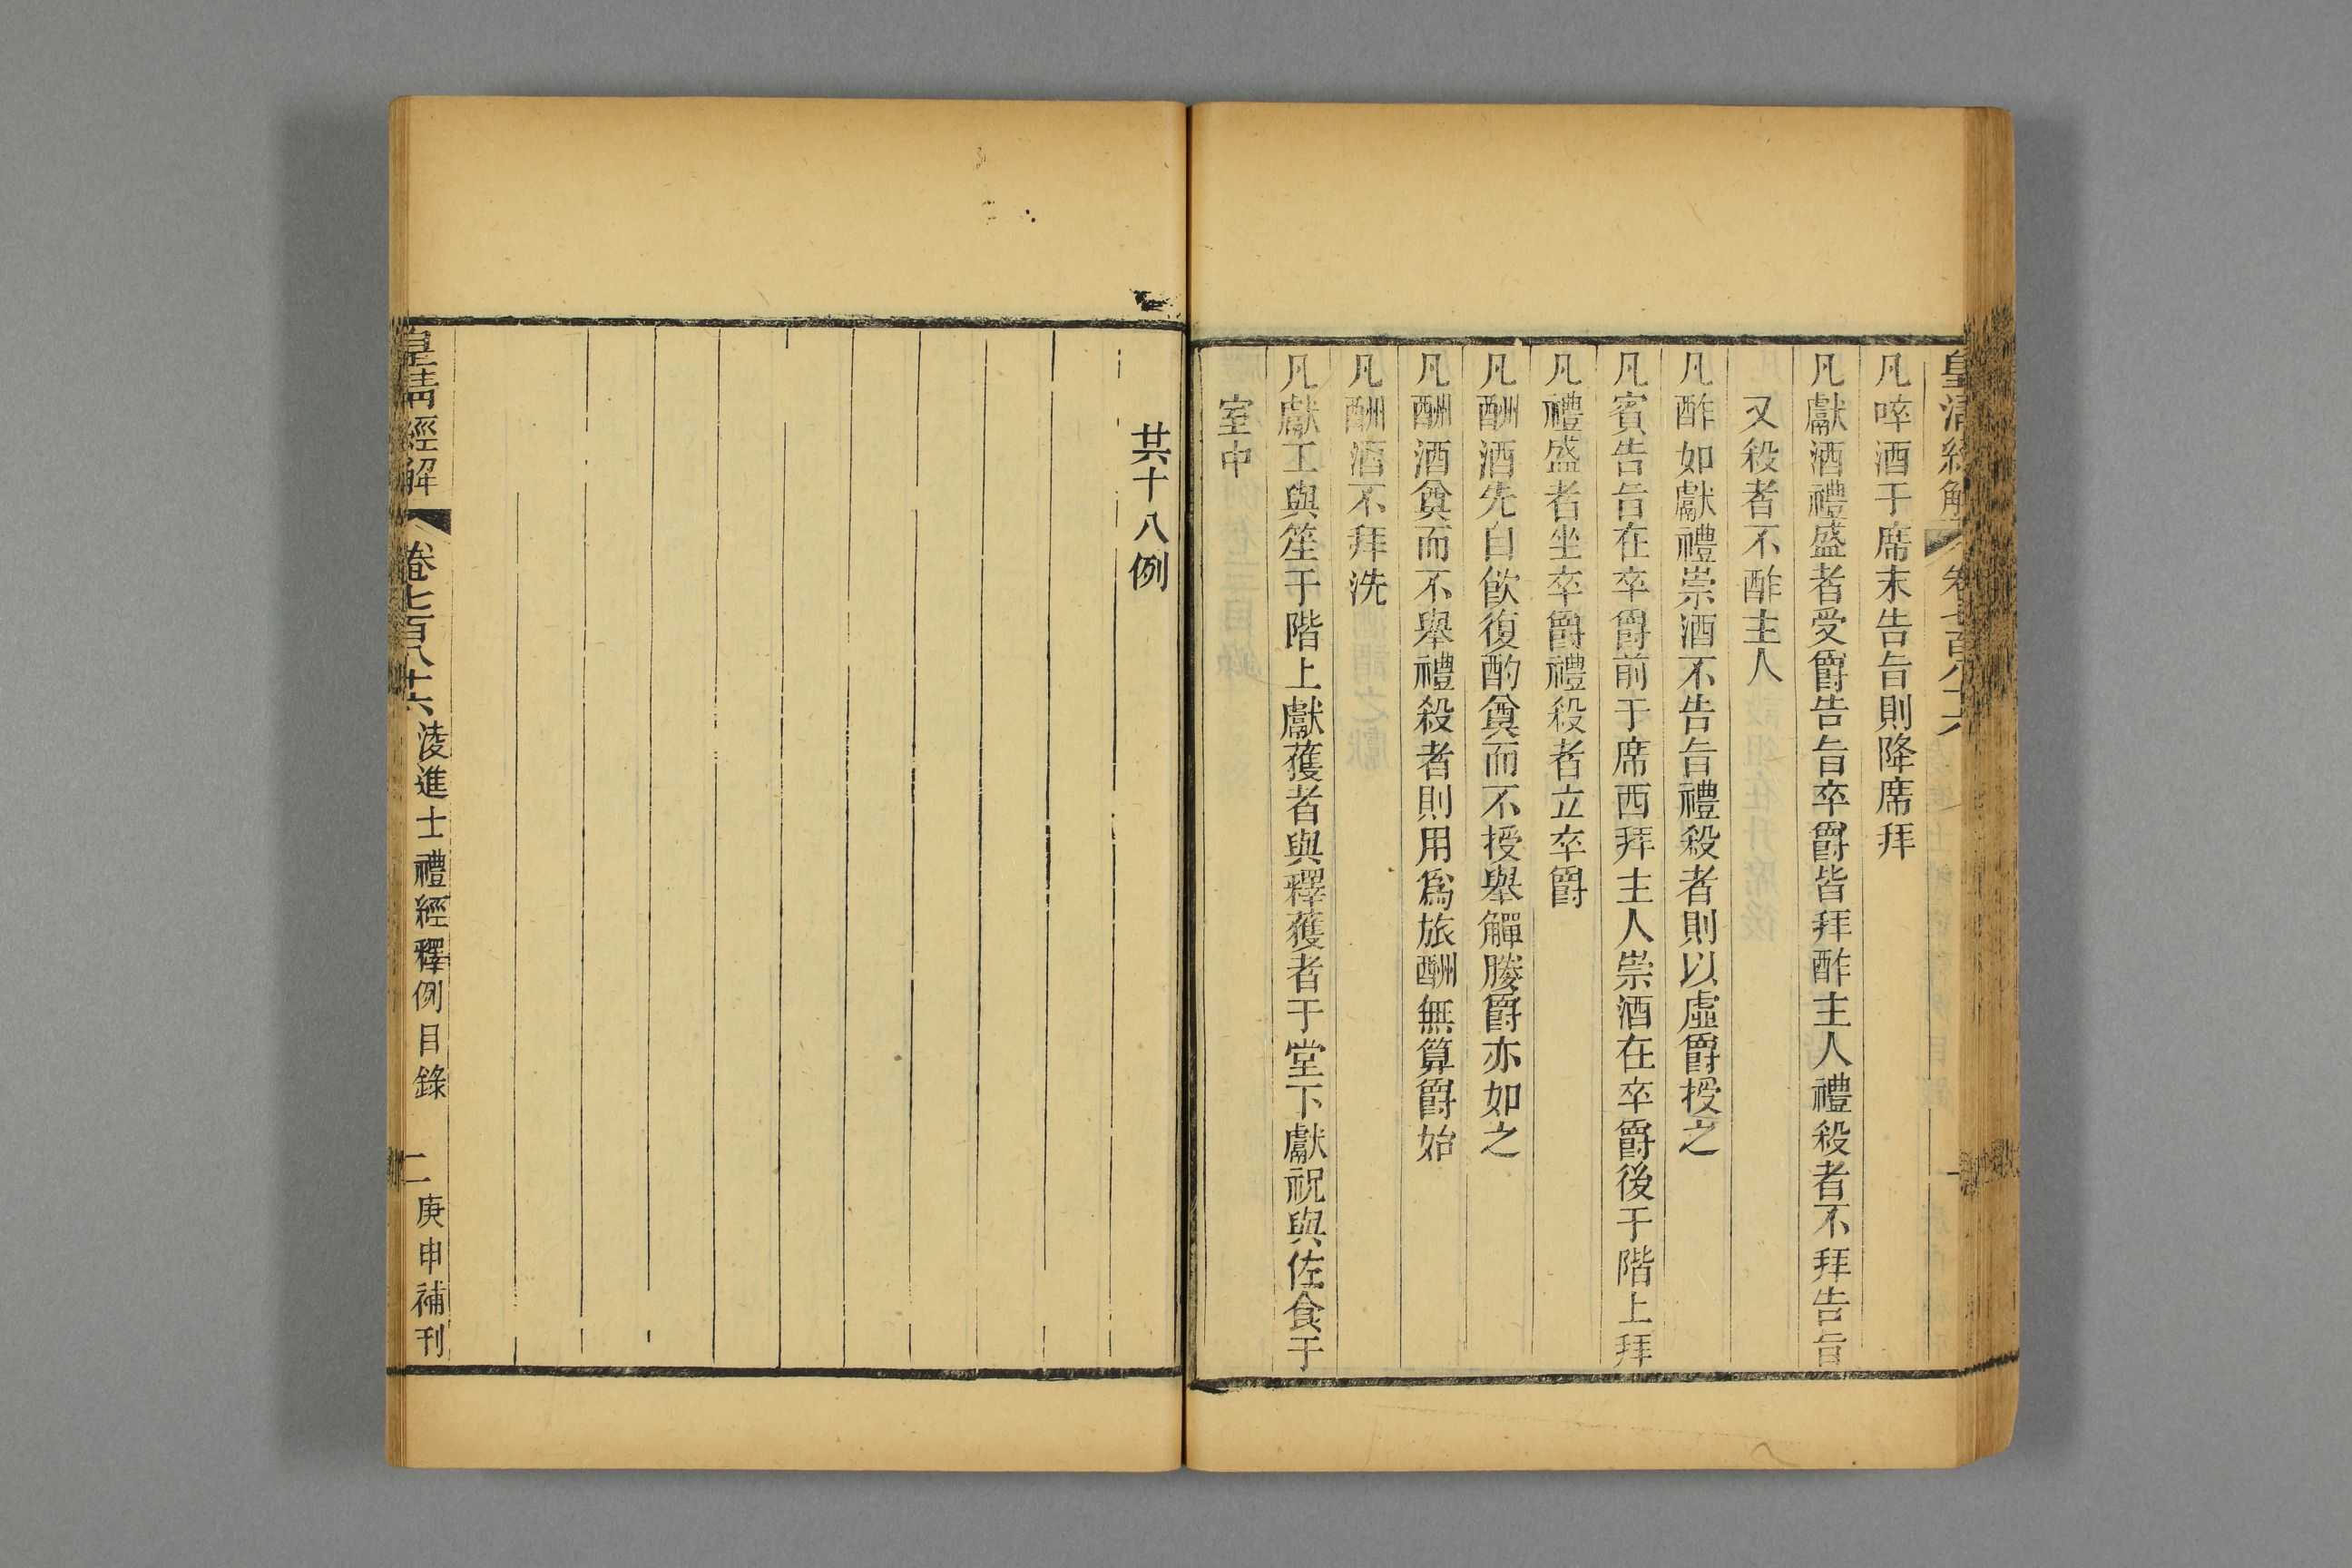 皇清經解 卷七百八十六
凡啐酒于席末告旨則降席拜
凡獻酒禮盛者受爵告旨卒爵皆拜酢主人禮殺者不拜告旨
又殺者不酢主人
凡酢如獻禮崇酒不告旨禮殺者則以虛爵授之
凡賓告旨在卒爵前于席西拜主人崇酒在卒爵後于階上拜
凡禮盛者坐卒爵禮殺者立卒爵
凡酬酒先自飲復酌奠而不授舉觶媵爵亦如之
凡酬酒奠而不舉禮殺者則用爲旅酬無算爵始
凡酬酒不拜洗
凡獻工與笙于階上獻獲者與釋獲者于堂下獻祝與佐食于
室中
共十八例
皇清經解 卷七百八十六 淩進士禮經釋例目錄 二 庚申補刊